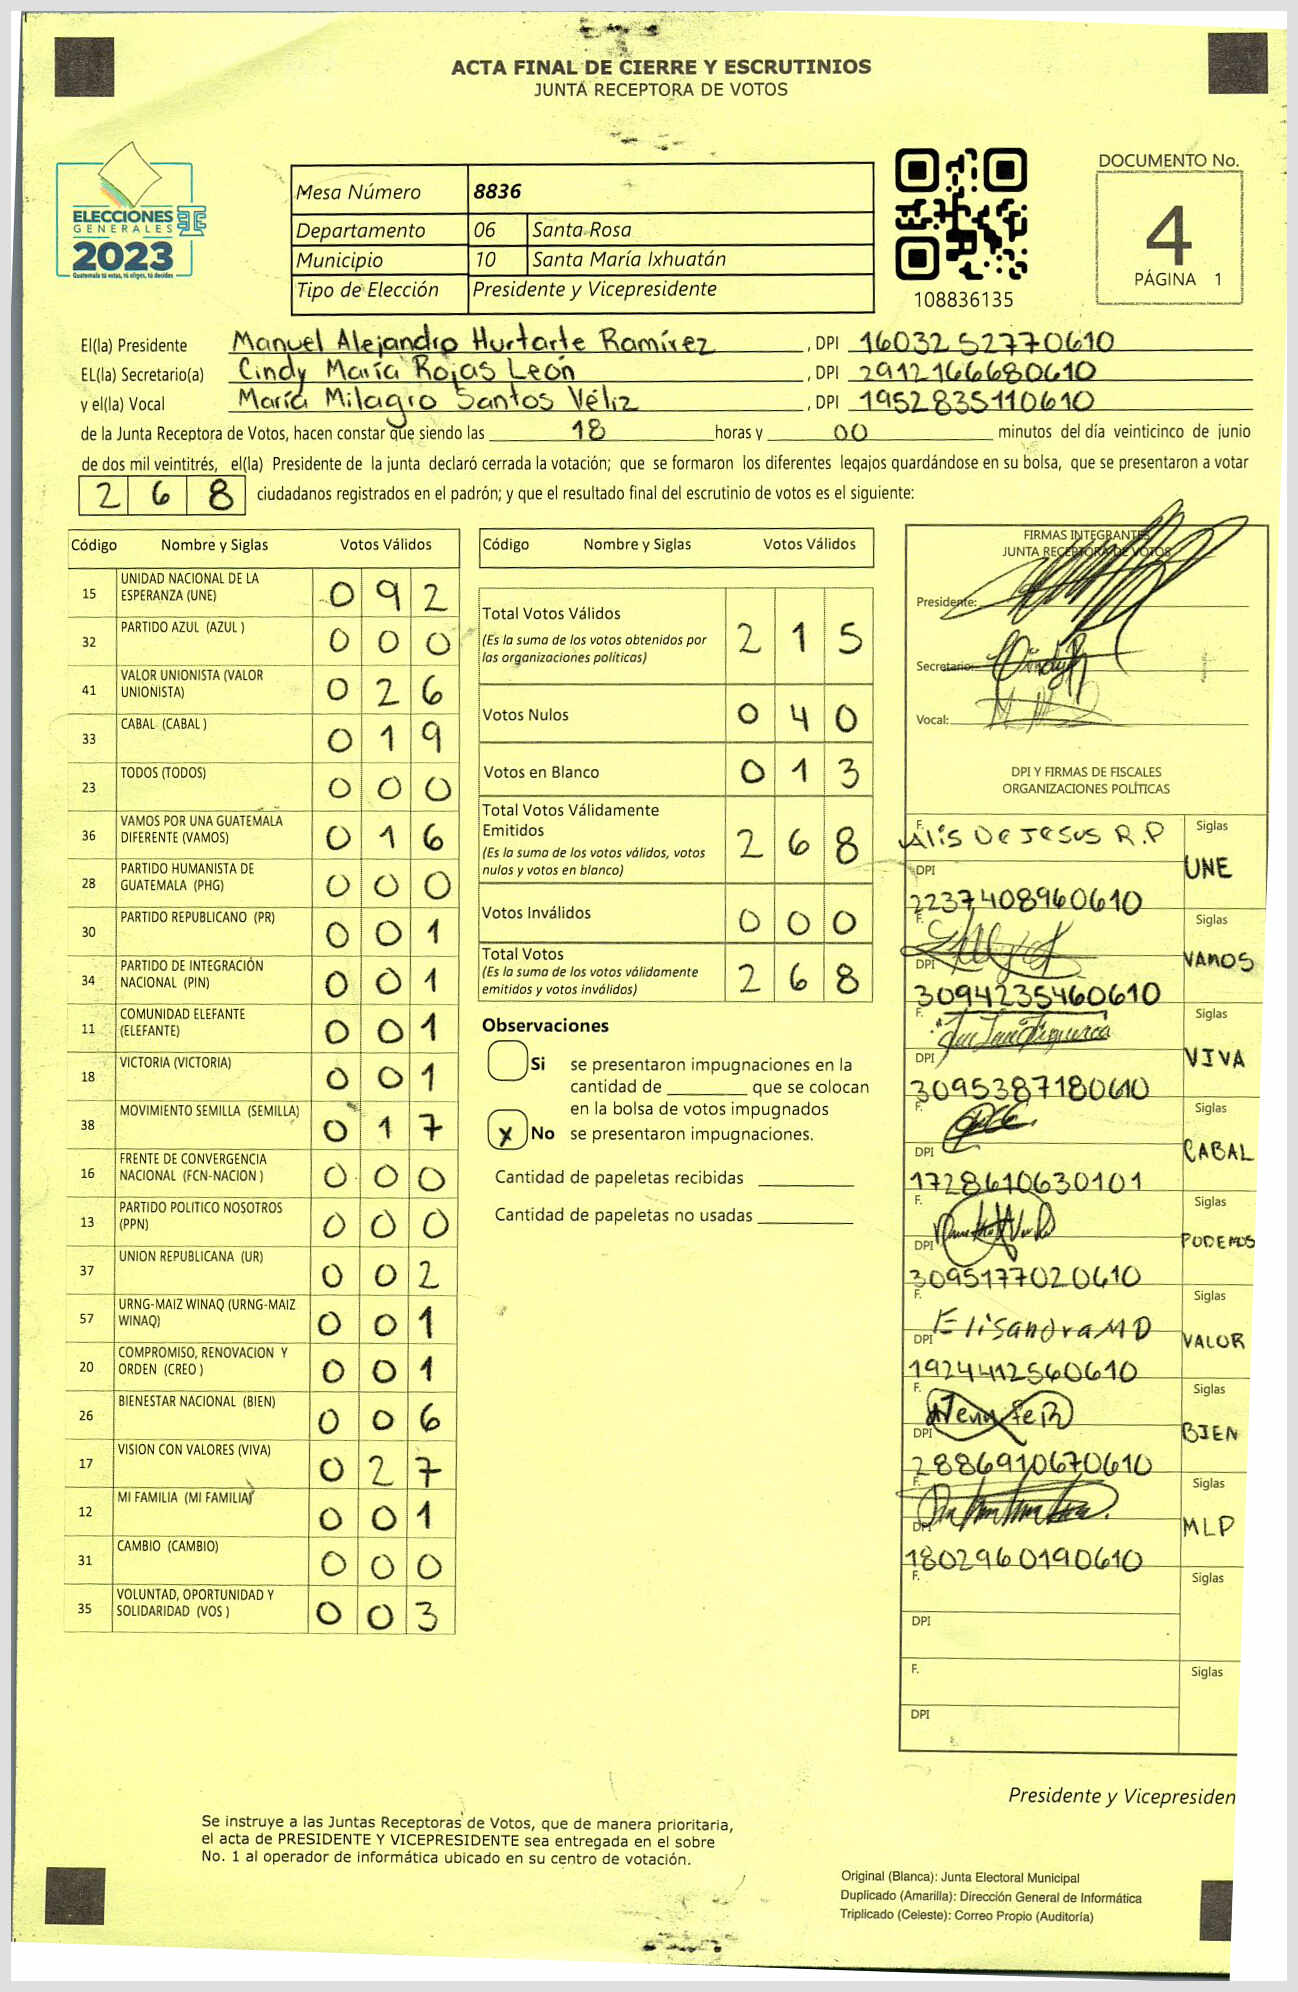 ACTA FINAL DE CIERRE Y ESCRUTINIOS
JUNTA RECEPTORA DE VOTOS
ELECCIONES
GENERALES
2023
Guatemala tú votas, tú eliges, tú decides
Mesa Número 8836
Departamento 06 Santa Rosa
Municipio 10 Santa María Ixhuatán
Tipo de Elección Presidente y Vicepresidente
108836135
DOCUMENTO No.
4
PÁGINA 1
El(la) Presidente Manuel Alejandro Hurtarte Ramírez , DPI 1603252770610
EL(la) Secretario(a) Cindy María Rojas León , DPI 2912166680610
y el(la) Vocal María Milagro Santos Véliz , DPI 1952835110610
de la Junta Receptora de Votos, hacen constar que siendo las 18 horas y 00 minutos del día veinticinco de junio
de dos mil veintitrés, el(la) Presidente de la junta declaró cerrada la votación; que se formaron los diferentes legajos guardándose en su bolsa, que se presentaron a votar
268 ciudadanos registrados en el padrón; y que el resultado final del escrutinio de votos es el siguiente:
Código Nombre y Siglas Votos Válidos
15 UNIDAD NACIONAL DE LA ESPERANZA (UNE) 092
32 PARTIDO AZUL (AZUL ) 000
41 VALOR UNIONISTA (VALOR UNIONISTA) 026
33 CABAL (CABAL ) 019
23 TODOS (TODOS) 000
36 VAMOS POR UNA GUATEMALA DIFERENTE (VAMOS) 016
28 PARTIDO HUMANISTA DE GUATEMALA (PHG) 000
30 PARTIDO REPUBLICANO (PR) 001
34 PARTIDO DE INTEGRACIÓN NACIONAL (PIN) 001
11 COMUNIDAD ELEFANTE (ELEFANTE) 001
18 VICTORIA (VICTORIA) 001
38 MOVIMIENTO SEMILLA (SEMILLA) 017
16 FRENTE DE CONVERGENCIA NACIONAL (FCN-NACION ) 000
13 PARTIDO POLITICO NOSOTROS (PPN) 000
37 UNION REPUBLICANA (UR) 002
57 URNG-MAIZ WINAQ (URNG-MAIZ WINAQ) 001
20 COMPROMISO, RENOVACION Y ORDEN (CREO ) 001
26 BIENESTAR NACIONAL (BIEN) 006
17 VISION CON VALORES (VIVA) 027
12 MI FAMILIA (MI FAMILIA) 001
31 CAMBIO (CAMBIO) 000
35 VOLUNTAD, OPORTUNIDAD Y SOLIDARIDAD (VOS ) 003
Código Nombre y Siglas Votos Válidos
Total Votos Válidos 215
(Es la suma de los votos obtenidos por
las organizaciones políticas)
Votos Nulos 040
Votos en Blanco 013
Total Votos Válidamente
Emitidos 268
(Es la suma de los votos válidos, votos
nulos y votos en blanco)
Votos Inválidos 000
Total Votos 268
(Es la suma de los votos válidamente
emitidos y votos inválidos)
Observaciones
Si se presentaron impugnaciones en la
cantidad de ________ que se colocan
en la bolsa de votos impugnados
X No se presentaron impugnaciones.
Cantidad de papeletas recibidas
Cantidad de papeletas no usadas
FIRMAS INTEGRANTES
JUNTA RECEPTORA DE VOTOS
Presidente:
Secretario:
Vocal:
DPI Y FIRMAS DE FISCALES
ORGANIZACIONES POLÍTICAS
F. Alis De Jesus R.P Siglas
DPI 2237408960610 UNE
F. Siglas
DPI 3094235460610 VAMOS
F. Siglas
DPI 3095387180610 VIVA
F. Siglas
DPI 1728610630101 CABAL
F. Siglas
DPI 3095177020610 PODEMOS
F. Elisandra MD Siglas
DPI 1924412560610 VALOR
F. Siglas
DPI 2886910670610 BIEN
F. Siglas
DPI 1802960190610 MLP
F. Siglas
DPI
F. Siglas
DPI
Presidente y Vicepresiden
Se instruye a las Juntas Receptoras de Votos, que de manera prioritaria,
el acta de PRESIDENTE Y VICEPRESIDENTE sea entregada en el sobre
No. 1 al operador de informática ubicado en su centro de votación.
Original (Blanca): Junta Electoral Municipal
Duplicado (Amarilla): Dirección General de Informática
Triplicado (Celeste): Correo Propio (Auditoría)